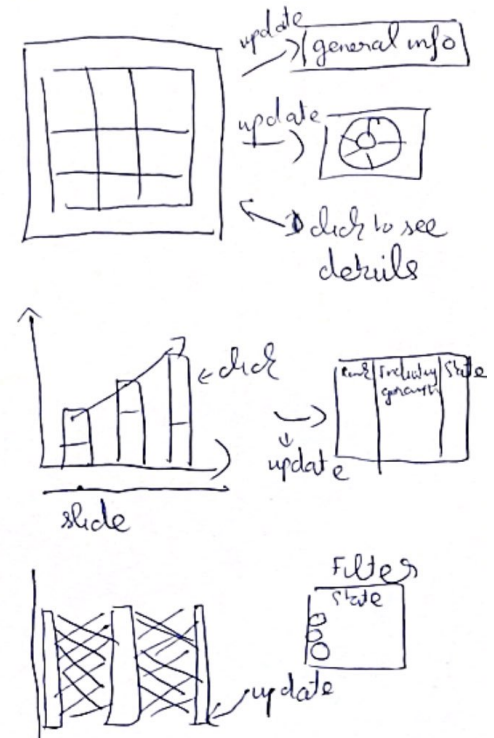 update
general info
update
click to see
details
click
Rank
Industry
growth
State
update
slide
Filter
State
update